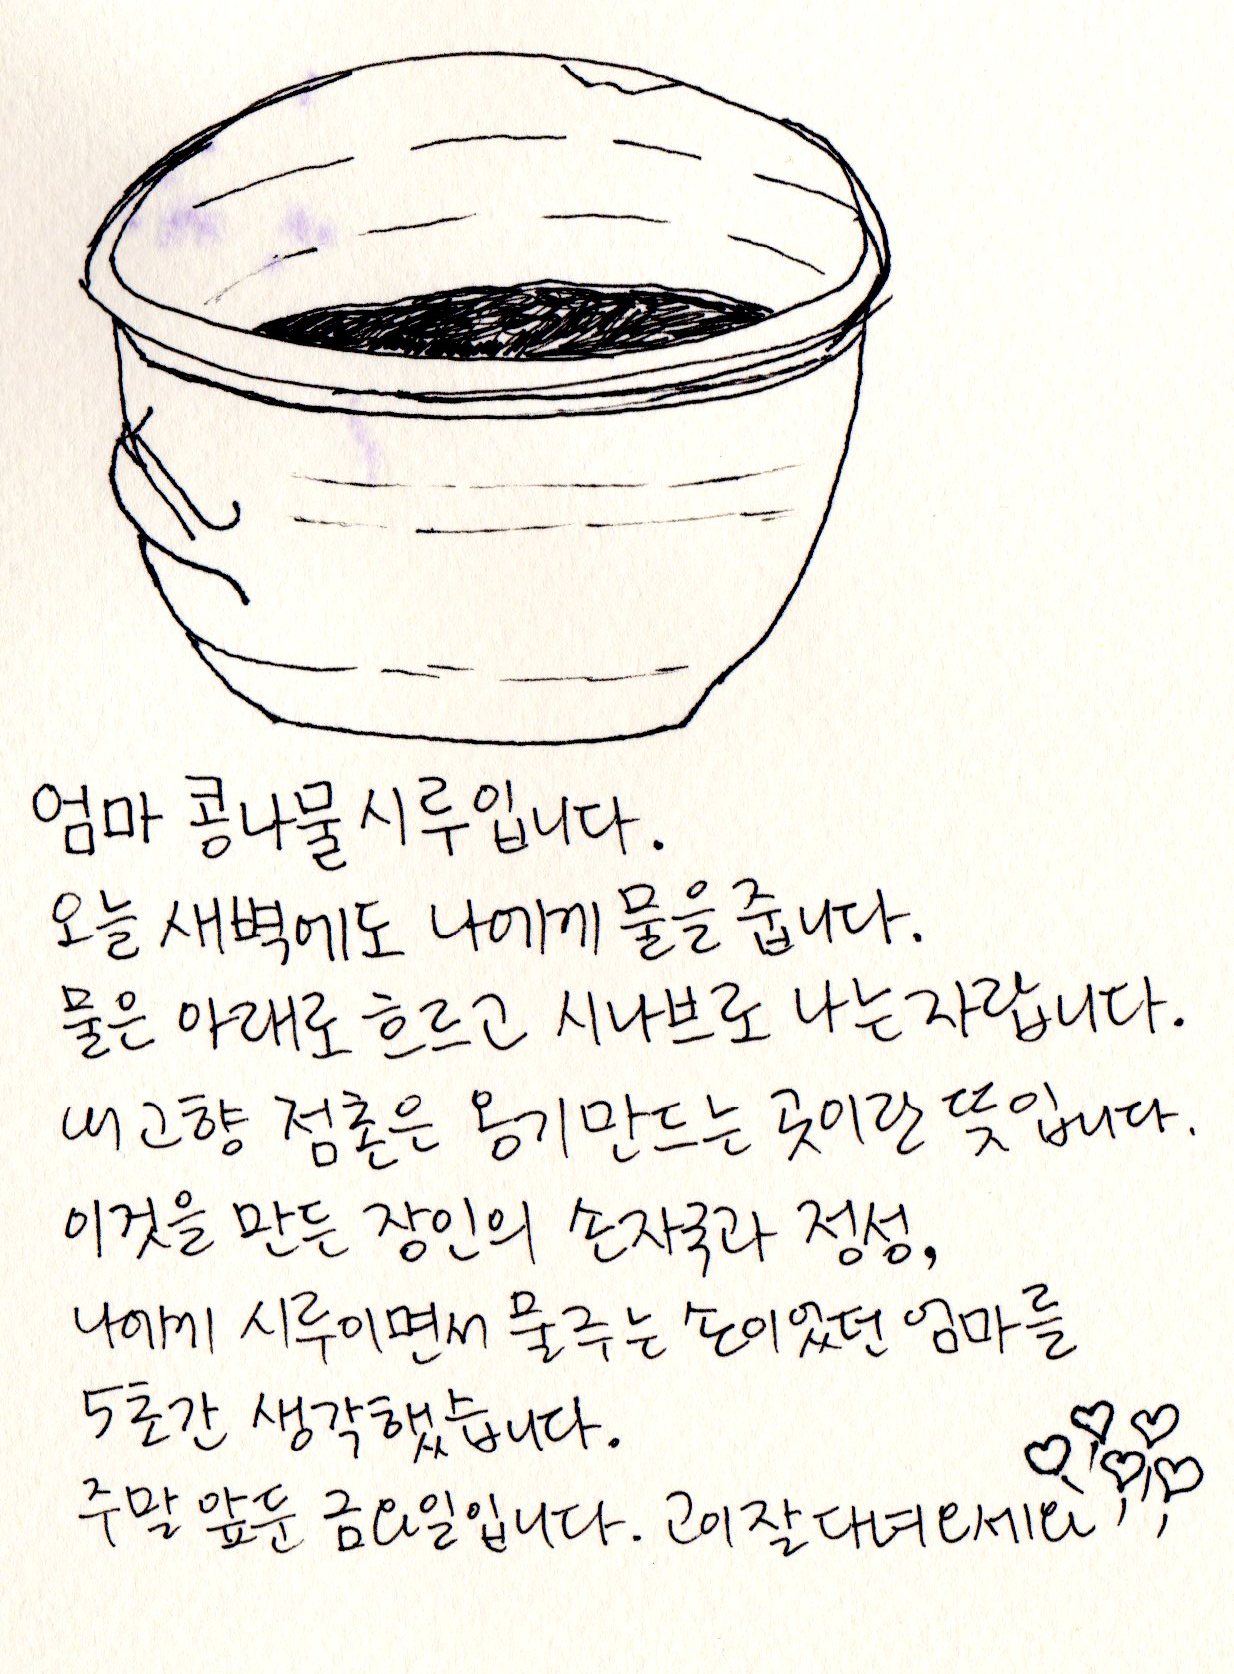 엄마 콩나물시루입니다.
오늘 새벽에도 나에게 물을 줍니다.
물은 아래로 흐르고 시나브로 나는 자랍니다.
내 고향 점촌은 옹기 만드는 곳이란 뜻입니다.
이것을 만든 장인의 손자국과 정성,
나에게 시루이면서 물주는 손이었던 엄마를
5초간 생각했습니다.
주말 앞둔 금요일입니다. 고이 잘 다녀오세요